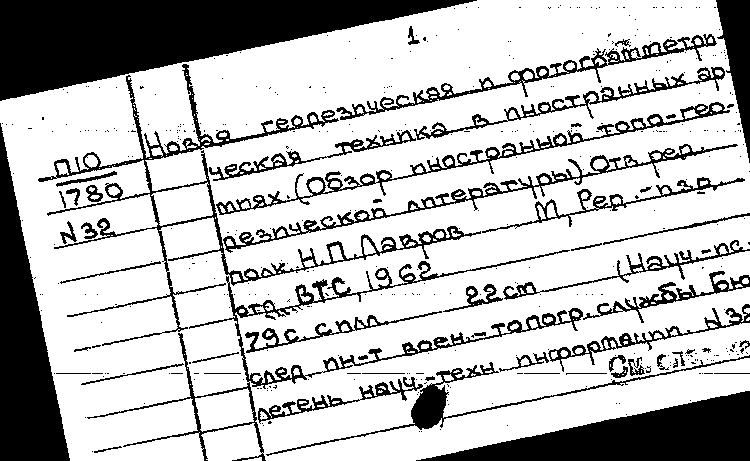 1.
П10
1780
N32
Новая геодезическая и фотограмметри-
ческая техника в иностранных ар-
миях. (Обзор иностранной топо-гео-
дезической литературы). Отв. ред.
полк. Н.П. Лавров М, Ред.-изд.
отд. ВТС, 1962
79 с. с илл. 22 cm (Науч.-ис.
след. ин-т воен.-топогр. службы. Бю
летень науч.-техн. информации. N32
См. след.